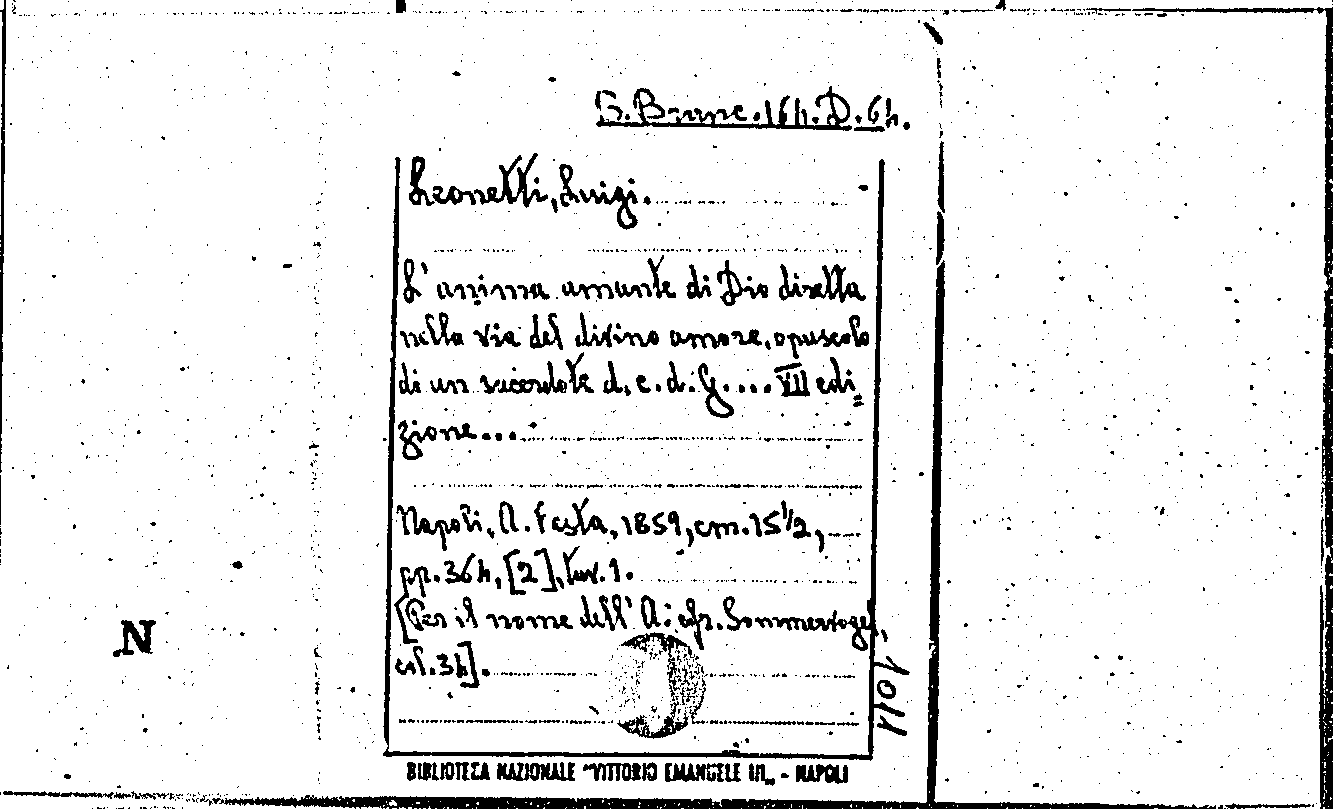 S. Branc. 164. D. 64.
Leonetti, Luigi.
L'anima amante di Dio diretta
nella via del divino amore, opuscolo
di un sacerdote d. c. d. G.... VII edi=
zione...
Napoli, A. Festa, 1859, cm. 15 1/2,
pp. 364, [2], tav. 1.
[Per il nome dell'A: cfr. Sommervogel,
col. 34].
N
BIBLIOTECA NAZIONALE "VITTORIO EMANUELE III„ - NAPOLI